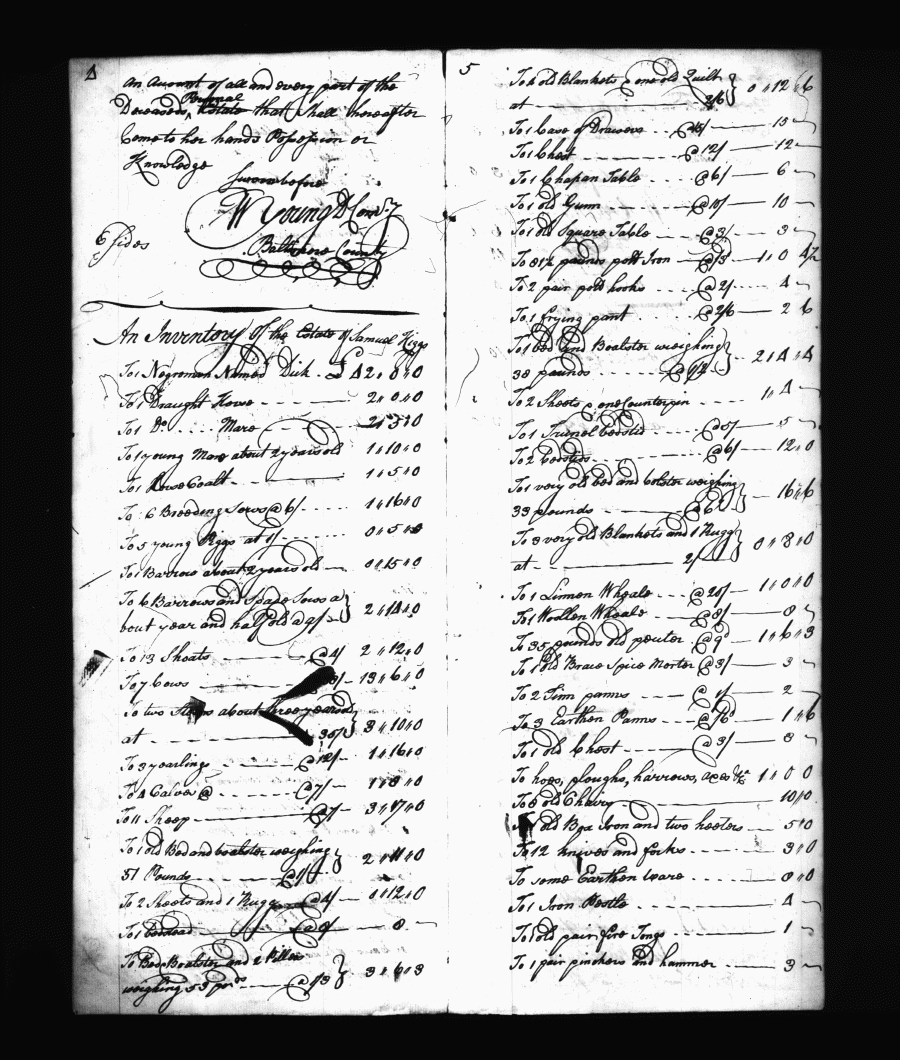 4
an Amount of all and every part of the
Deceaseds Personal Estate that Shall hereafter
Come to her hands Possession or
Knowledge
Sworn before
W Young D Comry
Baltimore County
6 Sides
An Inventory of the Estate of Samuel Higgs
To 1 Negroman Named Dick - £ 42 " 0 " 0
To 1 Draught Horse 2 " 0 " 0
To 1 Do Mare
To 1 young Mare about 2 years old 1 " 10 " 0
To 1 Coalt 1 " 5 " 0
To 6 Breeding Sows @ 6/ 1 " 16 " 0
To 5 young Piggs at 1/ 0 " 5 " 0
To 1 Barrow about 2 years old 0 " 15 " 0
To 6 Barrows and Spaed Sows a
bout year and half old @ 9/ 2 " 14 " 0
To 13 Shoats @ 4/ 2 " 12 " 0
To 7 Cows 13 " 6 " 0
To two Steers about three years old
at 35/ 3 " 10 " 0
To 3 yearlings @ 12/ 1 " 16 " 0
To 4 Calves @ @ 7/ 1 " 8 " 0
To 11 Sheep @ 7/ 3 " 17 " 0
To 1 old Bed and boalster weighing
51 Pounds @ 1/ 2 " 11 " 0
To 2 Sheets and 1 Rugg @ 4/ 0 " 12 " 0
To 1 bedstead @ 8/ 8
To Bed Boalster and 2 Pillows
weighing 53 pds @ 1/3 3 " 6 " 3
5
To 4 old Blankets & one old Quilt
at 2/6 0 " 12 " 6
To 1 Case of Drawers @ 15/ 15
To 1 Chest @ 12/ 12
To 1 Chapan Table @ 6/ 6
To 1 old Gunn @ 10/ 10
To 1 old Square Table @ 3/ 3
To 81½ pounds pott Iron @ 3d 1 " 0 4½
To 2 pair pott hooks @ 2/ 4
To 1 frying pann @ 2/6 2 6
To 1 bed and Boalster weighing
38 pounds 2 " 4 " 4
To 2 Sheets & one Counterpin 1 " 4
To 1 Trunel bedsted @ 5/ 5
To 2 bedsteds @ 6/ 12 " 0
To 1 very old bed and bolster weighing
33 pounds @ 6d 16 " 6
To 3 very old Blankets and 1 Rugg
at 2/ 0 " 8 " 0
To 1 Linnen Wheale @ 20/ 1 " 0 " 0
To 1 Woollen Wheale @ 8/ 8
To 35 pounds old peuter @ 9d 1 " 6 " 3
To 1 old Brace Spice Morter @ 3/ 3
To 2 Tinn panns @ 1/ 2
To 3 Earthen Panns @ /6d 1 " 6
To 1 old Chest @ 8/ 8
To hoes, ploughs, harrows, axes &ca 1 " 0 0
To 8 old Chairs 10 " 0
old Box Iron and two heeters 5 " 0
To 12 knives and forks 3 " 0
To some Earthen ware 8 " 0
To 1 Iron Pestle 4
To 1 old pair fire Tongs 1
To 1 pair pinchers and hammer 3